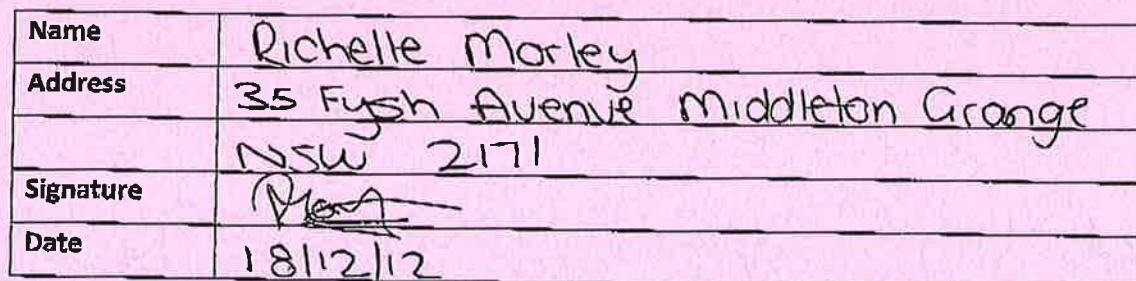 Name Richelle Morley
Address 35 Fysh Avenue Middleton Grange
NSW 2171
Signature
Date 18/12/12